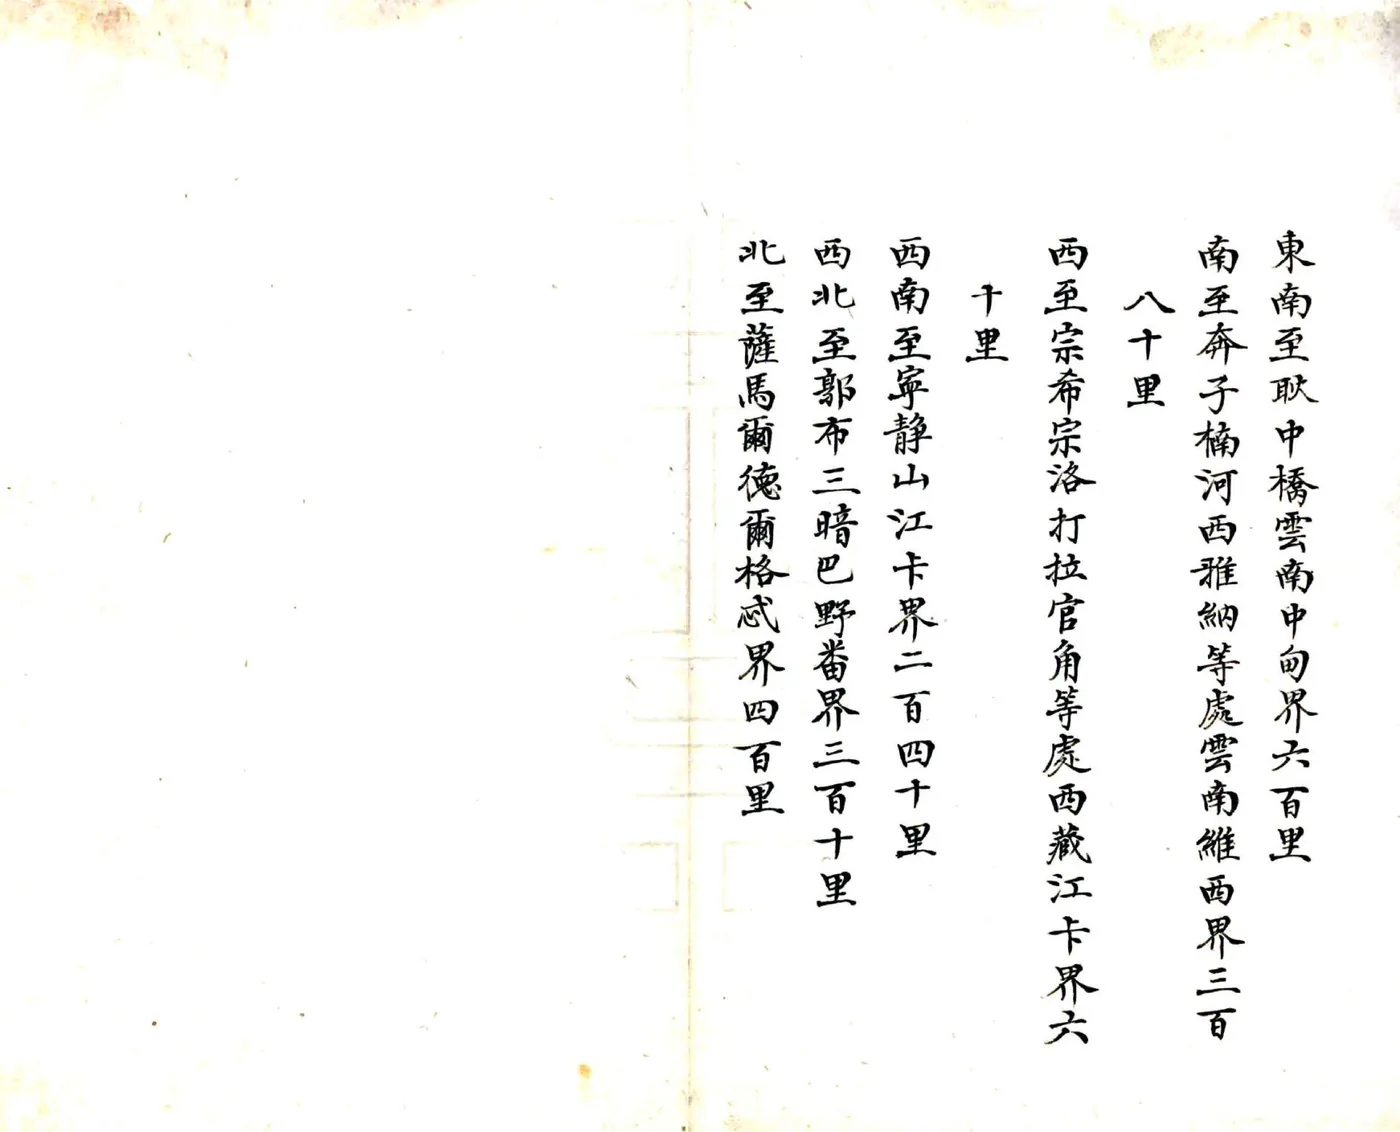 東南至耿中橋雲南中甸界六百里
南至奔子楠河西雅納等處雲南維西界三百
八十里
西至宗希宗洛打拉官角等處西藏江卡界六
十里
西南至寧静山江卡界二百四十里
西北至郭布三暗巴野番界三百十里
北至薩馬爾德爾格忒界四百里